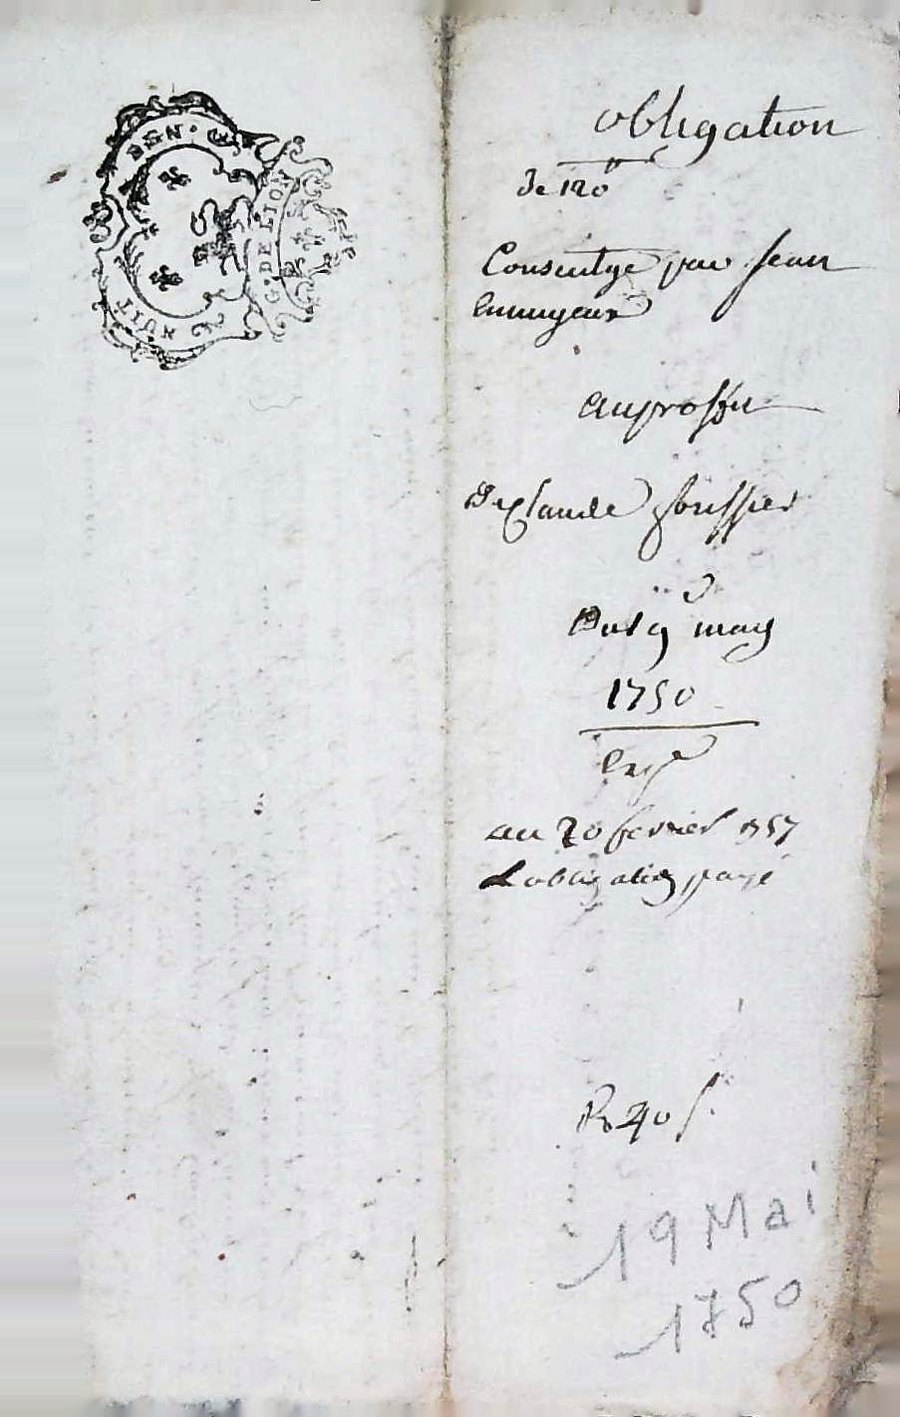 DEN.
G. DE LION
HUIT
obligation
de 120#
Consentye par Jean
Au proffit
De Claude
Du 19 may
1750
Exp
au 20 fevrier 1757
L'obligation payé
R 40 s.
19 Mai
1750